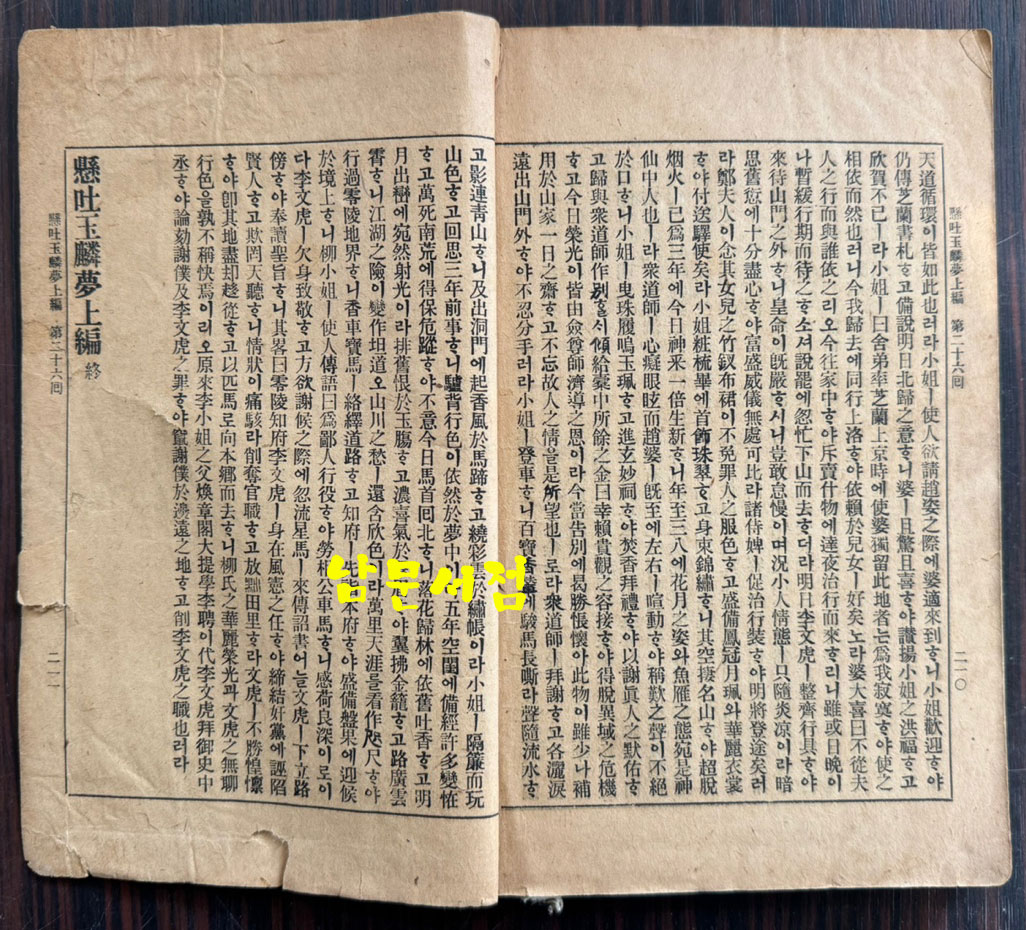 懸吐玉麟夢上編　第二十六回
二一〇
天道循環이皆如此也러라小姐ㅣ使人欲請趙婆之際에婆適來到ᄒᆞ니小姐歡迎ᄒᆞ야
仍傳芝蘭書札ᄒᆞ고備說明日北歸之意ᄒᆞ니婆ㅣ且驚且喜ᄒᆞ야讚揚小姐之洪福ᄒᆞ고
欣賀不已ㅣ라小姐ㅣ曰舍弟率芝蘭上京時에使婆獨留此地者ᄂᆞᆫ爲我寂寞ᄒᆞ야使之
相依而然也러니今我歸去에同行上洛ᄒᆞ야依賴於兒女ㅣ好矣노라婆大喜曰不從夫
人之行而與誰依之리오今往家中ᄒᆞ야斥賣什物에達夜治行而來ᄒᆞ리니雖或日晚이
나暫緩行期而待之ᄒᆞ소셔說罷에忽忙下山而去ᄒᆞ더라明日李文虎ㅣ整齊行具ᄒᆞ야
來待山門之外ᄒᆞ니皇命이旣嚴ᄒᆞ시니豈敢怠慢이며況小人情態ㅣ只隨炎凉이라暗
思舊愆에十分盡心ᄒᆞ야富盛威儀無處可比라諸侍婢ㅣ促治行裝ᄒᆞ야明將登途矣러
라鄭夫人이念其女兒之竹釵布裙이不免罪人之服色ᄒᆞ고盛備鳳冠月珮와華麗衣裳
ᄒᆞ야付送驛使矣라小姐粧梳畢에首飾珠翠ᄒᆞ고身束錦繡ᄒᆞ니其空接名山ᄒᆞ야超脫
烟火ㅣ已爲三年에今日神釆一倍生新ᄒᆞ니年至三八에花月之姿와魚雁之態宛是神
仙中人也ㅣ라衆道師ㅣ心癡眼眩而趙婆ㅣ旣至에左右ㅣ喧動ᄒᆞ야稱歎之聲이不絕
於口ᄒᆞ니小姐ㅣ曳珠履鳴玉珮ᄒᆞ고進玄妙祠ᄒᆞ야焚香拜禮ᄒᆞ야以謝眞人之默佑ᄒᆞ
고歸與衆道師作別ᄒᆞᆯ시傾給槖中所餘之金曰幸賴貴觀之容接ᄒᆞ야得脫異域之危機
ᄒᆞ고今日榮光이皆由僉尊師濟導之恩이라今當告別에曷勝悵懷아此物이雖少나補
用於山家一日之齋ᄒᆞ고不忘故人之情을是所望也ㅣ로라衆道師ㅣ拜謝ᄒᆞ고各灑淚
遠出山門外ᄒᆞ야不忍分手러라小姐ㅣ登車ᄒᆞ니百寶香에駿馬長嘶라聲隨流水ᄒᆞ
고影連靑山ᄒᆞ니及出洞門에起香風於馬蹄ᄒᆞ고繞彩雲於繡帳이라小姐ㅣ隔簾而玩
山色ᄒᆞ고回思三年前事ᄒᆞ니驢背行色이依然於夢中이五年空閨에備經許多變怪
ᄒᆞ고萬死南荒에得保危蹤ᄒᆞ야不意今日馬首回北ᄒᆞ니落花歸林에依舊吐香ᄒᆞ고明
月出巒에宛然射光이라排舊恨於玉膓ᄒᆞ고濃喜氣於ᄒᆞ야翼拂金籠ᄒᆞ고路廣雲
霄ᄒᆞ니江湖之險이變作坦道오山川之愁ㅣ還含欣色라萬里天涯를看作咫尺ᄒᆞ야
行過零陵地界ᄒᆞ니香車寶馬ㅣ絡繹道路ᄒᆞ고知府ㅣ先詣本府ᄒᆞ야盛備盤果에迎候
於境上ᄒᆞ니柳小姐ㅣ使人傳語曰爲鄙人行役ᄒᆞ야勞公車馬ᄒᆞ니感荷良深이로이
다李文虎ㅣ欠身致敬ᄒᆞ고方欲謝候之際에忽流星馬ㅣ來傳詔書어ᄂᆞᆯ虎ㅣ下立路
傍ᄒᆞ야奉讀聖旨ᄒᆞ니其畧曰零陵知府李文虎ㅣ身在風憲之任ᄒᆞ야締結奸黨에誣陷
賢人ᄒᆞ고欺罔天聽ᄒᆞ니情狀이痛駭라削奪官職ᄒᆞ고放田里ᄒᆞ라文虎ㅣ不勝惶懍
ᄒᆞ야卽其地盡却趍從ᄒᆞ고以匹馬로向本鄕而去ᄒᆞ니柳氏之華麗榮光과文虎之無聊
行色을孰不稱快焉이리오原來李小姐之父煥章閣大提學李聘이代李文虎拜御史中
丞ᄒᆞ야論劾謝僕及李文虎之罪ᄒᆞ야竄謝僕於邊遠之地ᄒᆞ고削李文虎之職也러라
懸吐玉麟夢上編 終
懸吐玉麟夢上編　第二十六回
二一一
남문서점